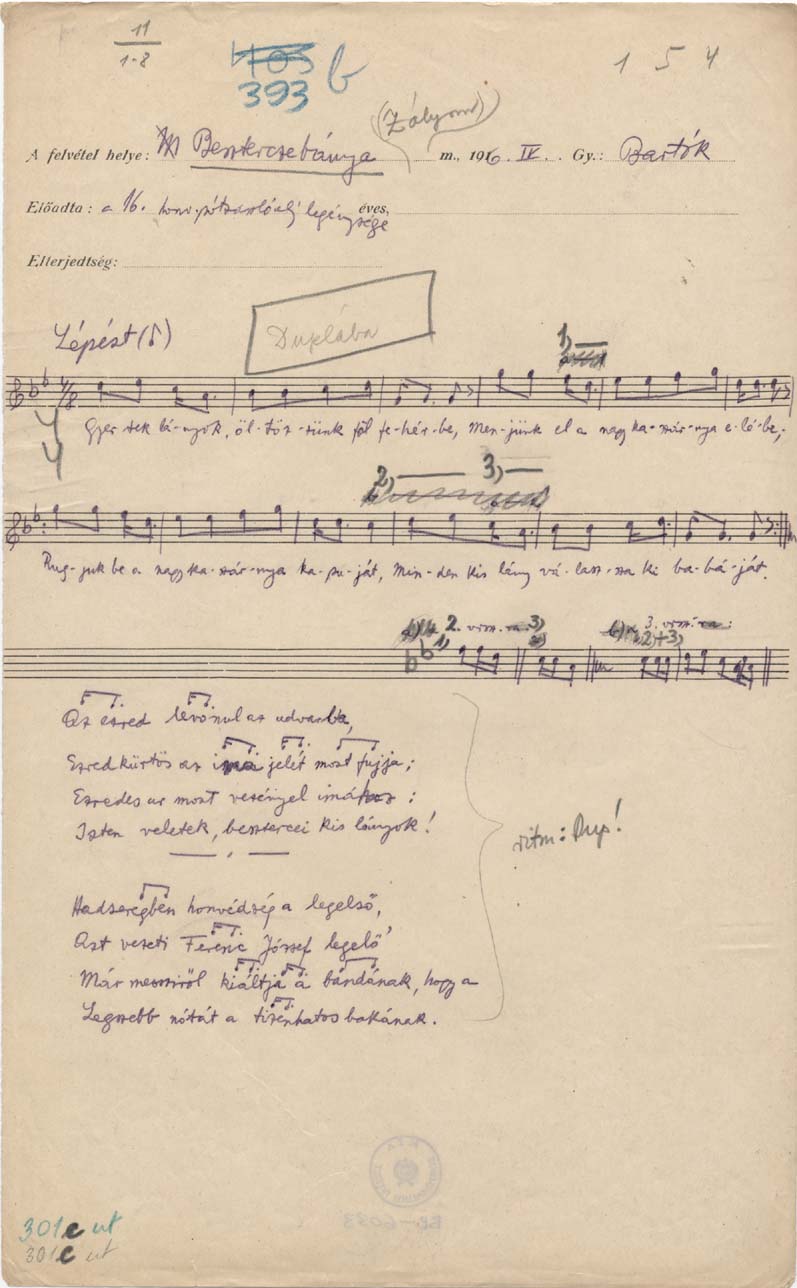 11
1-8
403 b
393
1 5 4
(Zólyom)
A felvétel helye: M Besztercebánya m., 1916. IV. Gy.: Bartók
Előadta: a 16. honv. pótzászlóalj legénysége éves,
Elterjedtség:
Lépést
Duplába
1)
4/8
Gyer-tek lá-nyok, öl-töz-zünk föl fe-hér-be, Men-jünk el a nagy ka-szár-nya e-lé-be;
2) 3)
Rug-juk be a nagy ka-szár-nya ka-pu-ját, Min-den kis lány vá-lasz-sza ki ba-bá-ját.
1) 2. versz. 3)
3. versz.:
2)+3)
Az ezred levonul az udvarba,
Ezredkürtös az ima jelét most fujja;
Ezredes ur most vezényel imához:
Isten veletek, besztercei kis lányok!
ritm: Dup!
Hadseregben honvédség a legelső,
Azt vezeti Ferenc József legelő'
Már messziről kiáltja a bandának, hogy a
Legszebb nótát a tizenhatos bakának.
301c ut
301c ut